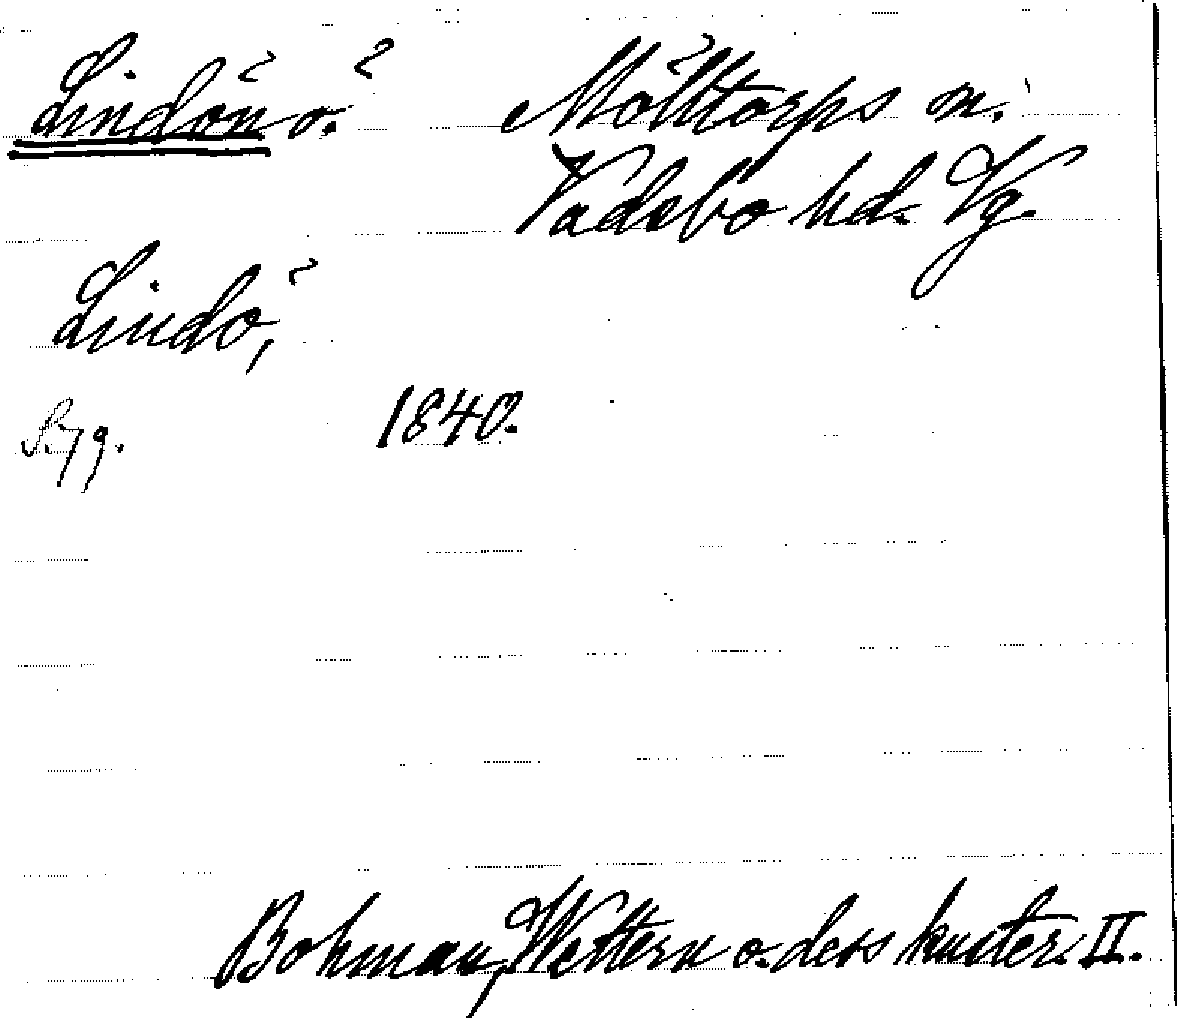 Lindön ö. Mölltorps sn.
Vadsbo hd. Vg.
Lindö,
S. 79. 1840.
Bohman, Wettern o. dess kuster. II.